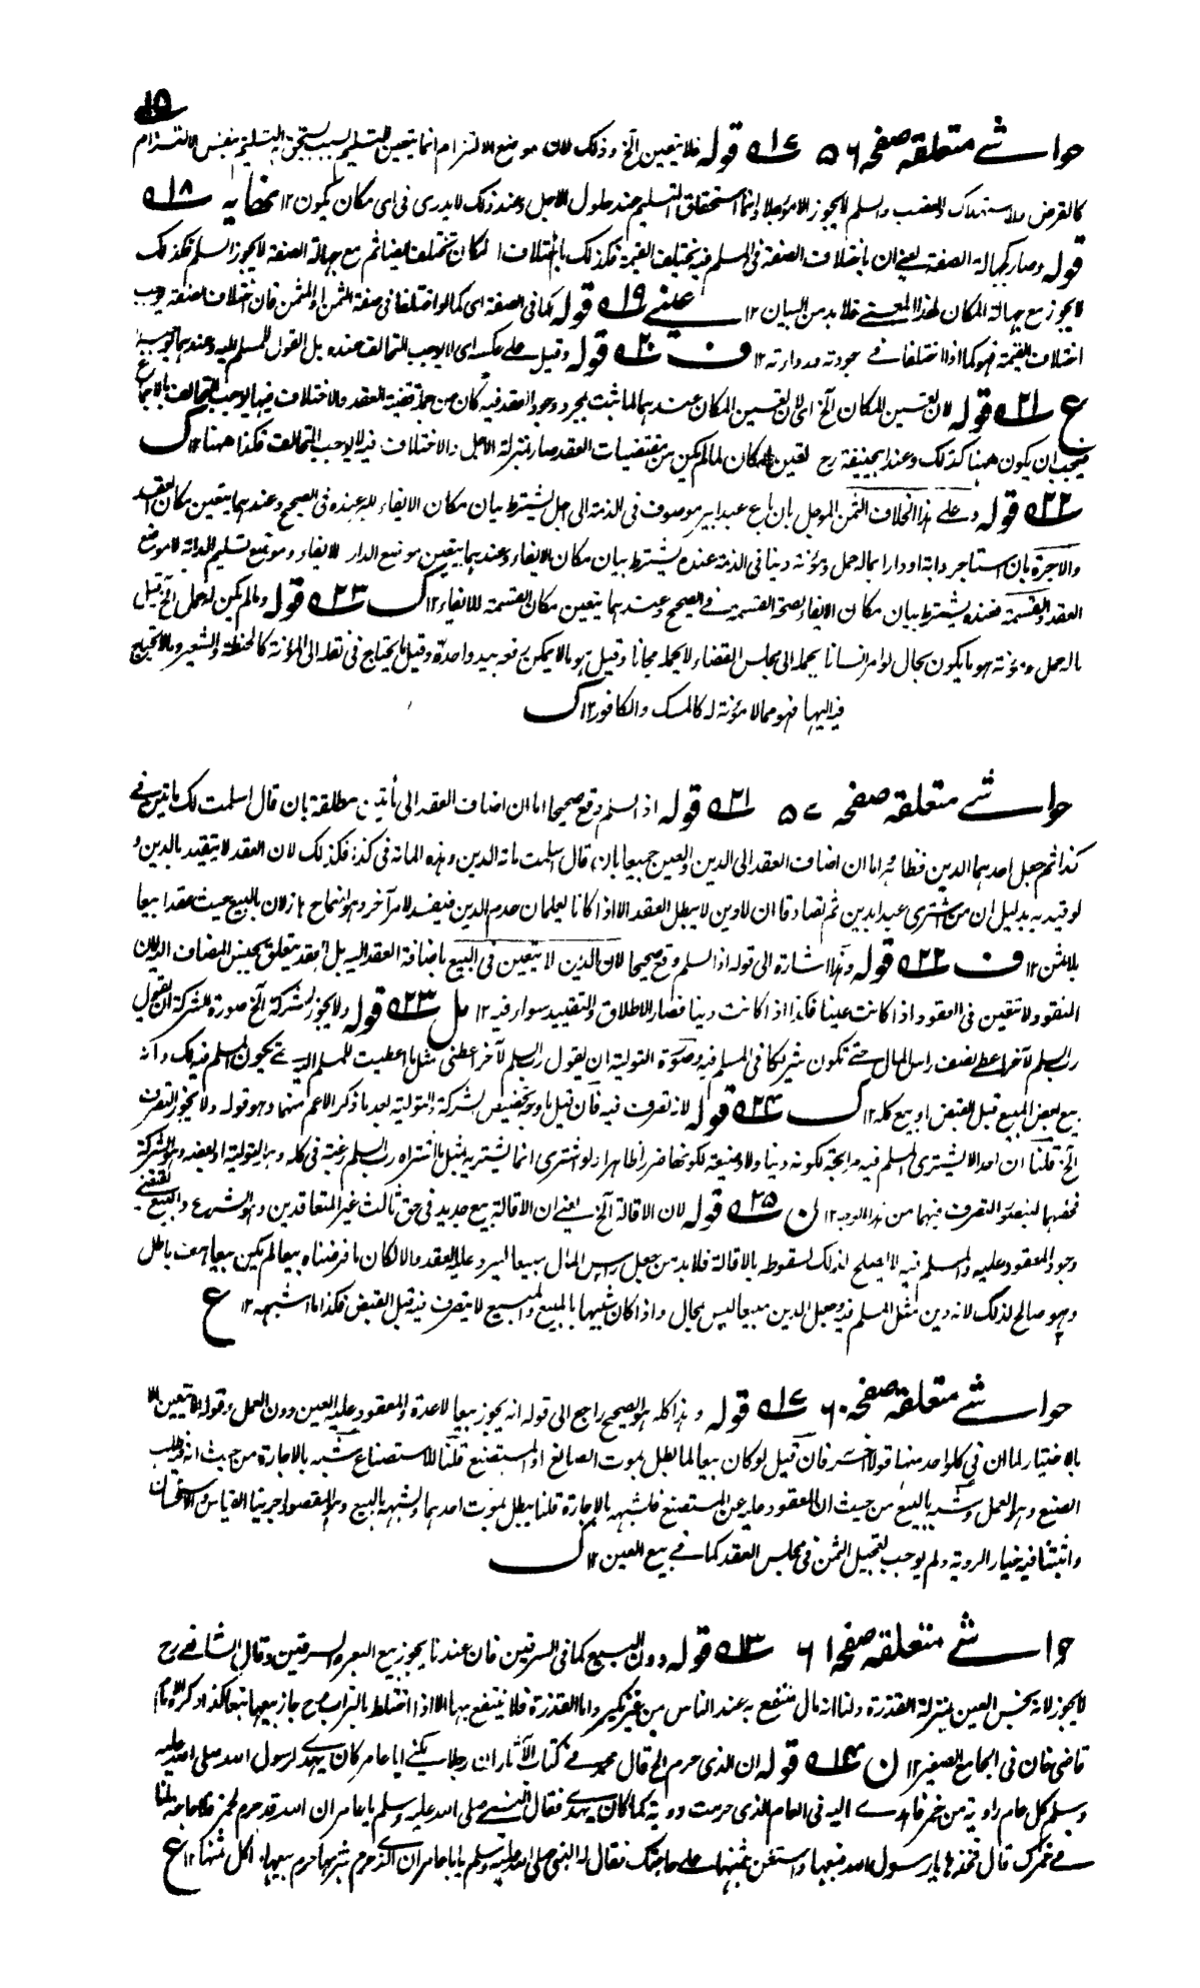 ١٥
حواشے متعلقہ صفحہ ٥٦ ١٧ قولہ فلا يتعين الخ وذلك لان موضع الالتزام انما يتعين للتسليم بسبب يستحق به التسليم بنفس الالتزام
كالقرض والاستهلاك والغصب والسلم لا يجوز الا مؤجلا وانما استحقاق التسليم عند حلول الاجل وعند ذلك لا يدرى فى اى مكان يكون ١٢ عنايه ١٨
قوله وصار كجهالة الصفة يعنى ان باختلاف الصفة فى المسلم فيه يختلف القيمة فكذلك باختلاف المكان تختلف ايضا ثم مع جهالة الصفة لا يجوز السلم فكذلك
لا يجوز مع جهالة المكان لهذا المعنے فلا بد من البيان ١٢ عينے ١٩ قوله كما فى الصفة اى كما لو اختلفا فى صفة الثمن او المثمن فان اختلاف الصفة يوجب
اختلاف القيمة فهو كما اذا اختلفا فے جودته ورداءته ١٢ ف ٢٠ قوله وقيل على عكسه اى لا يوجب التحالف عنده بل القول للمسلم اليه وعندهما يوجبه
ع ٢١ قوله لان تعيين المكان الخ اى لان تعيين المكان عندهما لما ثبت بمجرد وجود العقد فيه كان من جملة قضية العقد والاختلاف فيها يوجب التحالف بالاجماع
فيجب ان يكون ههنا كذلك وعند ابيحنيفة رح تعيين المكان لما لم يكن من مقتضيات العقد صار بمنزلة الاجل والاختلاف فيه لا يوجب التحالف فكذا ههنا ١٢ ك
٢٢ قوله وعلى هذا الخلاف الثمن المؤجل بان باع عبدا ببر موصوف فى الذمة الى اجل يشترط بيان مكان الايفاء للبر عنده فى الصحيح وعندهما يتعين مكان العقد
والاجرة بان استاجر دابة او دارا بماله حمل ومؤنة دينا فى الذمة عنده يشترط بيان مكان الايفاء وعندهما يتعين موضع الدار للايفاء وموضع تسليم الدابة لا موضع
العقد والقسمة فعنده يشترط بيان مكان الايفاء لصحة القسمة فے الصحيح وعندهما يتعين مكان القسمة للايفاء ١٢ ك ٢٣ قوله وما لم يكن له حمل الخ قيل
ما له حمل ومؤنة هو ما يكون بحال لو امر انسانا بحمله الى مجلس القضاء لا يحمله مجانا وقيل هو ما لا يمكن رفعه بيد واحدة وقيل ما يحتاج فى نقله الى المؤنة كالحنطة والشعير وما لا يحتاج
فيه اليها فهو مما لا مؤنة له كالمسك والكافور ١٢ ك
حواشے متعلقہ صفحہ ٥٧ ٢١ قوله اذ السلم وقع صحيحا اما ان اضاف العقد الى مأتين مطلقة بان قال اسلمت لك مأتين فے
كذا ثم جعل احدهما الدين فظاهر اما ان اضاف العقد الى الدين والعين جميعا بان قال اسلمت مائة الدين وهذه المائة فى كذا فكذلك لان العقد لا يتقيد بالدين و
لو قيد به بدليل ان من اشترى عبدا بدين ثم تصادقا ان لا دين لا يبطل العقد الا اذا كانا يعلمان عدم الدين فيفسد لامر آخر وهو انهما هازلان بالبيع حيث عقدا بيعا
بلا ثمن ١٢ ف ٢٢ قوله وهذا اشارة الى قوله اذ السلم وقع صحيحا لان الدين لا يتعين فى البيع باضافة العقد اليه بل العقد يتعلق بجنس المضاف اليه لان
النقود لا تتعين فى العقود اذا كانت عينا فكذا اذا كانت دينا فصار الاطلاق والتقييد سواء فيه ١٢ مل ٢٣ قوله ولا يجوز الشركة الخ صورة الشركة ان يقول
رب السلم لآخر اعط نصف راس المال حتى تكون شريكا فى المسلم فيه وصورة التولية ان يقول رب السلم لآخر اعطنى مثل ما اعطيت للمسلم اليه حتى يكون المسلم فيه لك وانه
بيع بعض المبيع قبل القبض او بيع كله ١٢ ك ٢٤ قوله لانه تصرف فيه فان قيل ما وجه تخصيص الشركة والتولية بعد ما ذكر الاعم منهما وهو قوله ولا يجوز التصرف
الخ قلنا ان احدا لا يشترى المسلم فيه مرابحة لكونه دينا ولا وضيعة لكونها ضررا ظاهرا ولو اشترى انما يشتريه بمثل ما اشتراه رب السلم رغبة فى كله وهو التولية او بعضه وهو الشركة
فخصهما لنفى التصرف فيهما من هذا الوجه ١٢ ن ٢٥ قوله لان الاقالة الخ يعنى ان الاقالة بيع جديد فى حق ثالث غير المتعاقدين وهو الشرع والبيع يقتضى
وجود المعقود عليه والمسلم فيه لا يصلح لذلك لسقوطه بالاقالة فلا بد من جعل راس المال مبيعا ليرد عليه العقد والا لكان ما فرضناه بيعا لم يكن بيعا هف باطل
وهو صالح لذلك لانه دين مثل المسلم فيه وجعل الدين مبيعا ليس بمحال واذا كان شبيها بالمبيع والمبيع لا يتصرف فيه قبل القبض فكذا ما اشبهه ١٢ ع
حواشے متعلقہ صفحہ ٦٠ ١٧ قوله وهذا كله هو الصحيح راجع الى قوله انه يجوز بيعا لا عدة والمعقود عليه العين دون العمل وقوله لا يتعين الا
بالاختيار لما ان فى كل واحد منها قولا آخر فان قيل لو كان بيعا لما بطل بموت الصانع او المستصنع قلنا للاستصناع شبه بالاجارة من حيث انه طلب
الصنع وهو العمل وشبه بالبيع من حيث ان المعقود عليه عين المستصنع فلشبهه بالاجارة قلنا يبطل بموت احدهما ولشبهه بالبيع وهو المقصود اجرينا القياس والاستحسان
واثبتنا فيه خيار الرويه ولم يوجب تعجيل الثمن فى مجلس العقد كما فے بيع العين ١٢ ك
حواشے متعلقہ صفحہ ٦١ ١٣ قوله دون البيع كما فى السرقين فان عندنا يجوز بيع البعر والسرقين وقال الشافعے رح
لا يجوز لانه نجس العين بمنزلة العذرة ولنا انه مال منتفع به عند الناس من غير نكير واما العذرة فلا ينتفع بها الا اذا اختلط بالتراب وح جاز بيعها تبعا كذا ذكر الامام
قاضى خان فى الجامع الصغير ١٢ ن ١٤ قوله ان الذى حرم الخ قال محمد فے كتاب الآثار ان رجلا يكنى ابا عامر كان يهدى لرسول الله صلى الله عليه
وسلم كل عام راوية من خمر فاهدے اليه فى العام الذى حرمت راوية كما كان يهدے فقال النبے صلى الله عليه وسلم يا ابا عامر ان الله قد حرم الخمر فلا حاجة لنا
فے خمرك قال فخذها يا رسول الله فبعها واستعن بثمنها على حاجتك فقال له النبى صلى الله عليه وسلم يا ابا عامر ان الذى حرم شربها حرم بيعها واكل ثمنها ١٢ ع